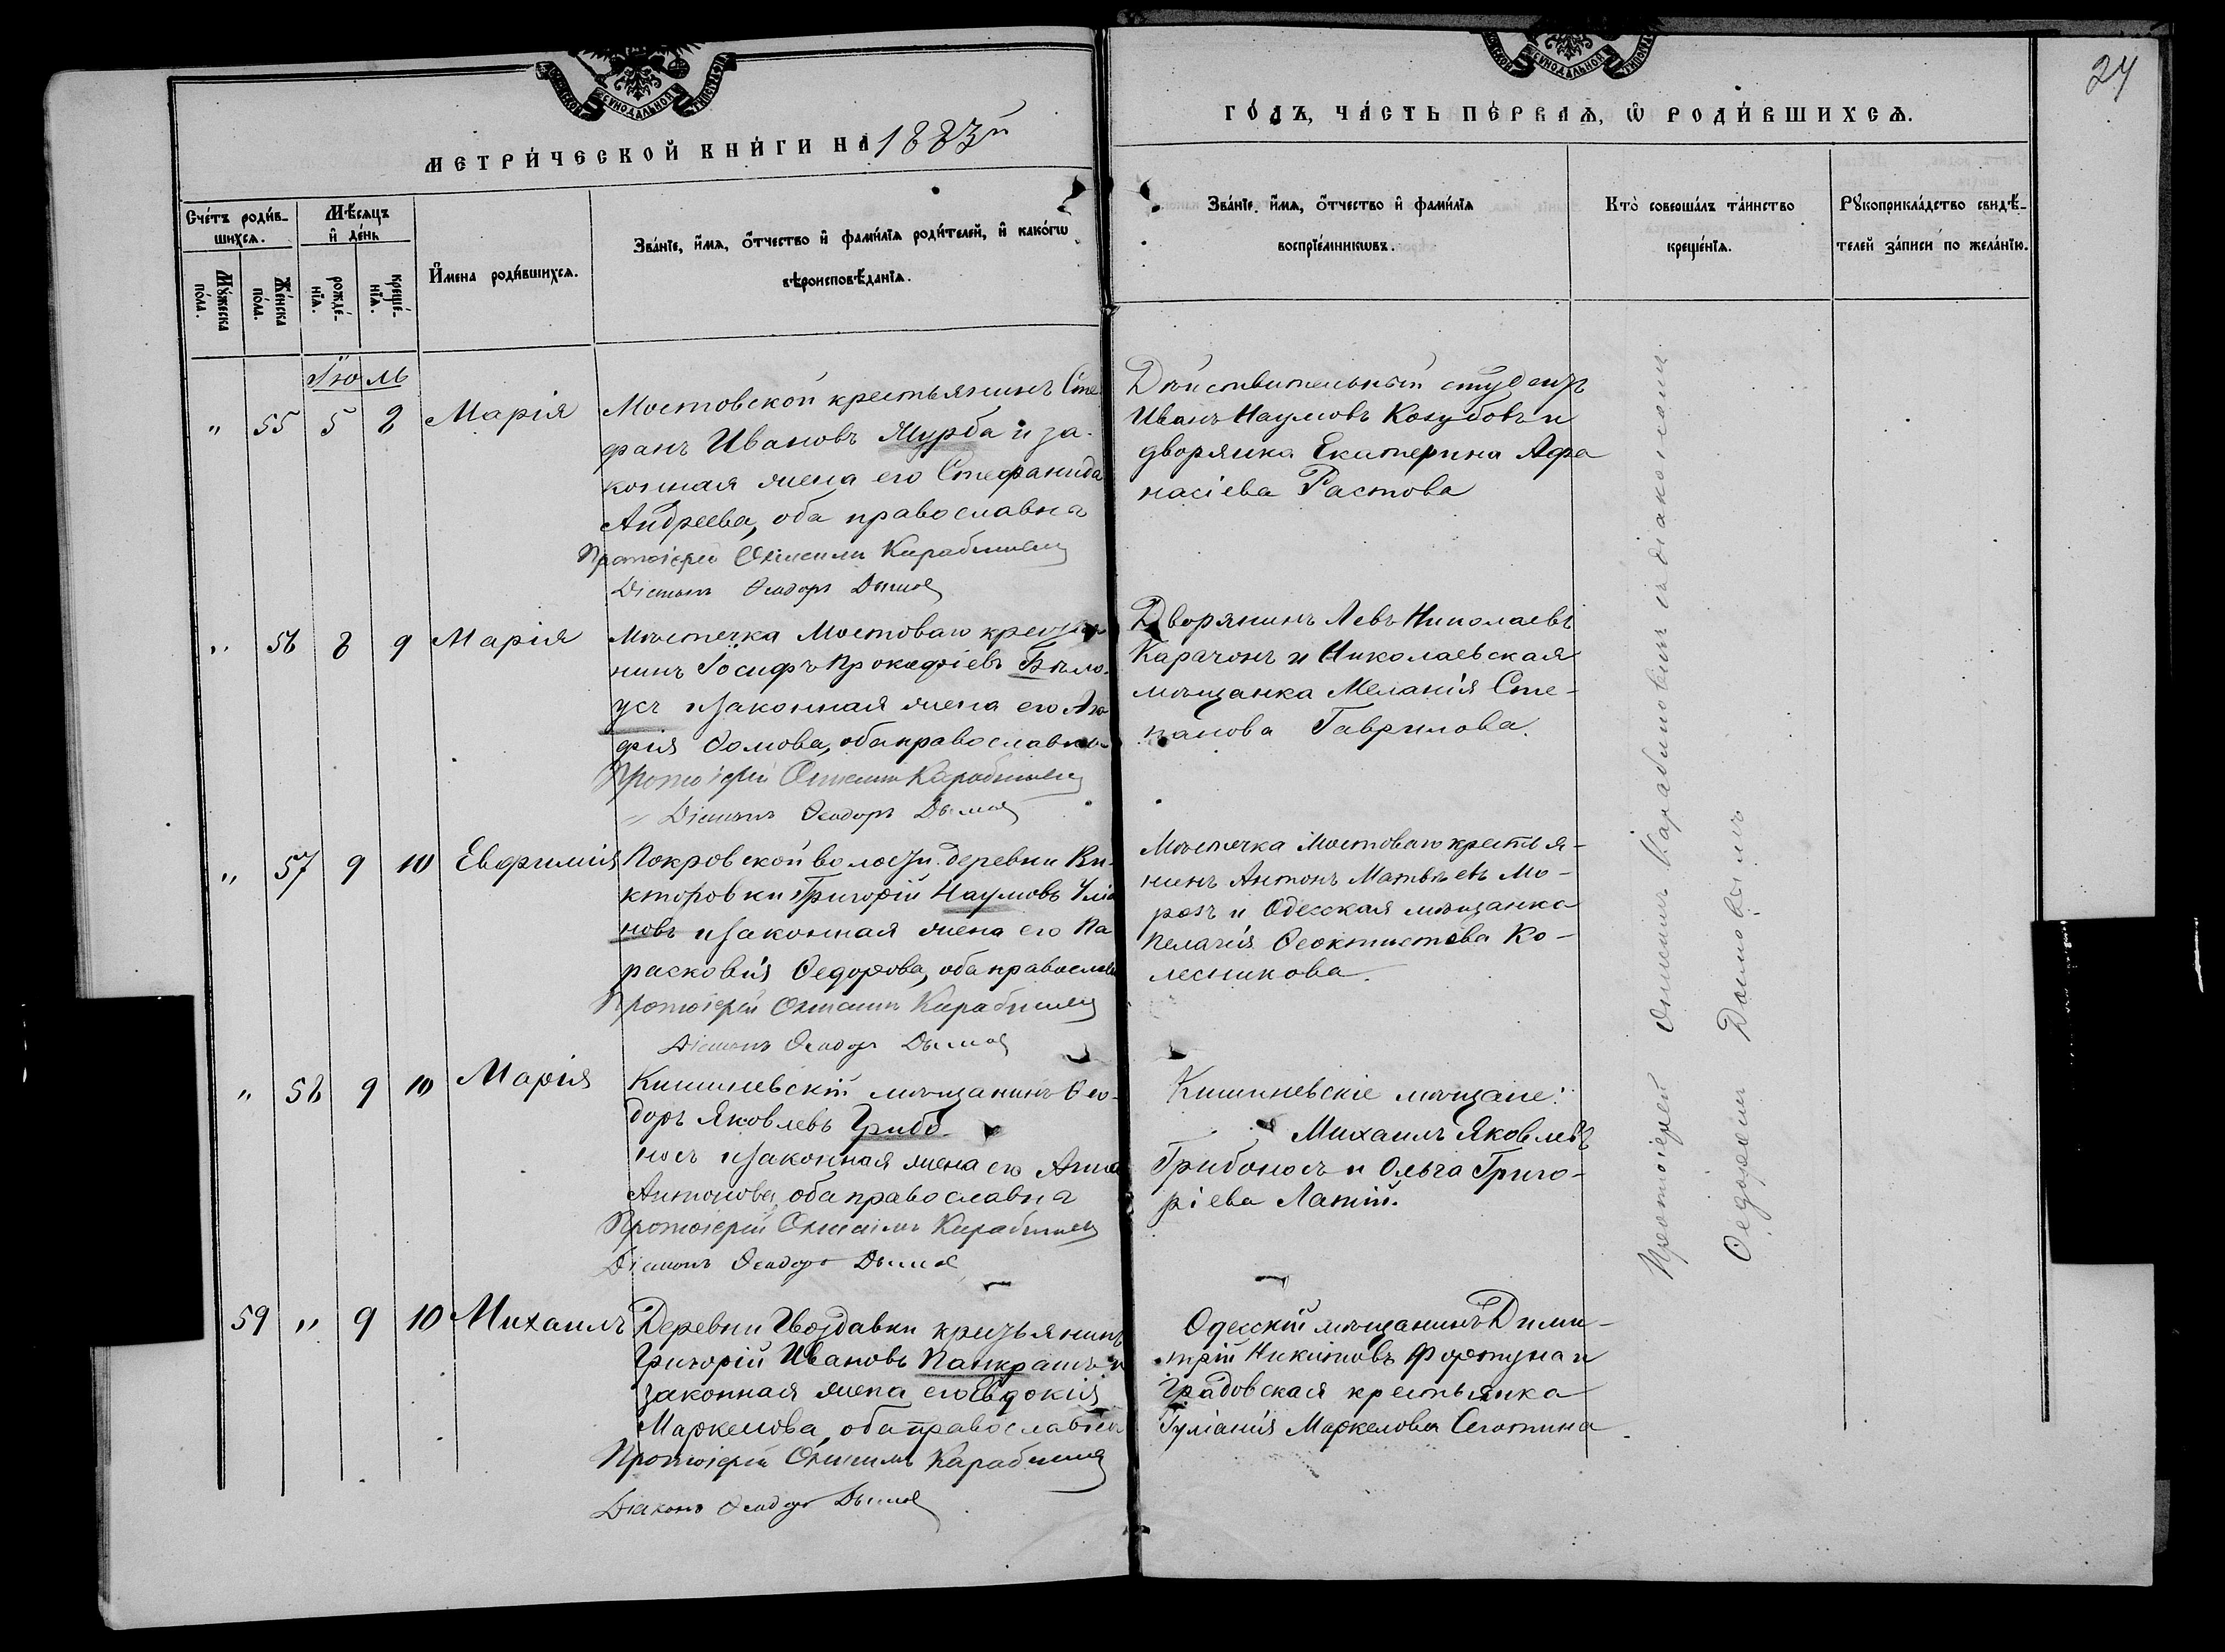 МЕТРИ́ЧЕСКОЙ КНИ́ГИ НА 1883й
ГО́ДЪ, ЧА́СТЬ ПЕ́РВАѦ, Ѡ҆ РОДИ́ВШИХСѦ.
24
Сче́тъ роди́в-
шихсѧ.
Мѣ́сѧцъ
и҆ де́нь
И҆мена роди́вшихсѧ.
Зва́нїе, и҆́мѧ, ѻ҆́тчество и҆ фами́лїѧ роди́телей, и҆ како́гѡ
вѣроисповѣ́данїѧ.
Зва́нїе, и҆́мѧ, ѻ҆́тчество и҆ фами́лїѧ
воспрїе́мникѡвъ.
Кто̀ соверша́лъ та́инство
креще́нїѧ.
Рꙋкоприкла́дство свидѣ́-
телей за́писи по жела́нїю.
Мꙋ́жеска
по́ла.
Же́нска
по́ла.
рожде́-
нїѧ.
креще́-
нїѧ.
Іюль
" 55 5 8 Марія
Мостовской крестьянинъ Сте-
фанъ Ивановъ Журба и за-
конная жена его Стефанида
Андреева, оба православна
Протоіерей Онисимъ
Діаконъ Ѳеодоръ
Дѣйствительный студентъ
Иванъ Наумовъ Козубовъ и
дворянка Екатерина Афа
насіева Растова
" 56 8 9 Марія
Мѣстечка Мостоваго крестья-
нинъ Іосифъ Прокофіевъ Бѣло-
усъ и законная жена его
фія Ѳомова, оба православна
Протоіерей Онисимъ
Діаконъ Ѳеодоръ
Дворянинъ Левъ Николаевъ
Карачонъ и Николаевская
мѣщанка Меланія Сте-
панова Гаврилова.
" 57 9 10 Евфимія
Покровской волости деревни Ви-
кторовки Григорій Наумовъ Улія
новъ и законная жена его Па
расковія Ѳедорова, оба православна
Протоіерей Онисимъ
Діаконъ Ѳеодоръ
Мѣстечка Мостоваго крестья-
нинъ Антонъ Матвѣевъ Мо-
розъ и Одесская мѣщанка
Пелагія Ѳеоктистова Ко-
лесникова.
" 58 9 10 Марія
Кишиневскій мѣщанинъ Ѳео-
доръ Яковлевъ Грибо-
носъ и законная жена его Анна
Антонова, оба православна
Протоіерей Онисимъ
Діаконъ Ѳеодоръ
Кишиневскіе мѣщане:
Михаилъ Яковлевъ
Грибоносъ и Ольга Григо-
ріева Латій.
59 " 9 10 Михаилъ
Деревни Гвоздавки крестьянинъ
Григорій Ивановъ Панкрашъ и
законная жена его Евдокія
Маркелова, оба православна
Протоіерей Онисимъ
Діаконъ Ѳеодоръ
Одесскій мѣщанинъ Дими-
трій Никитовъ Фортуна и
Градовская крестьянка
Іуліанія Маркелова
Протоіерей Онисимъ съ діакономъ
Ѳедоромъ